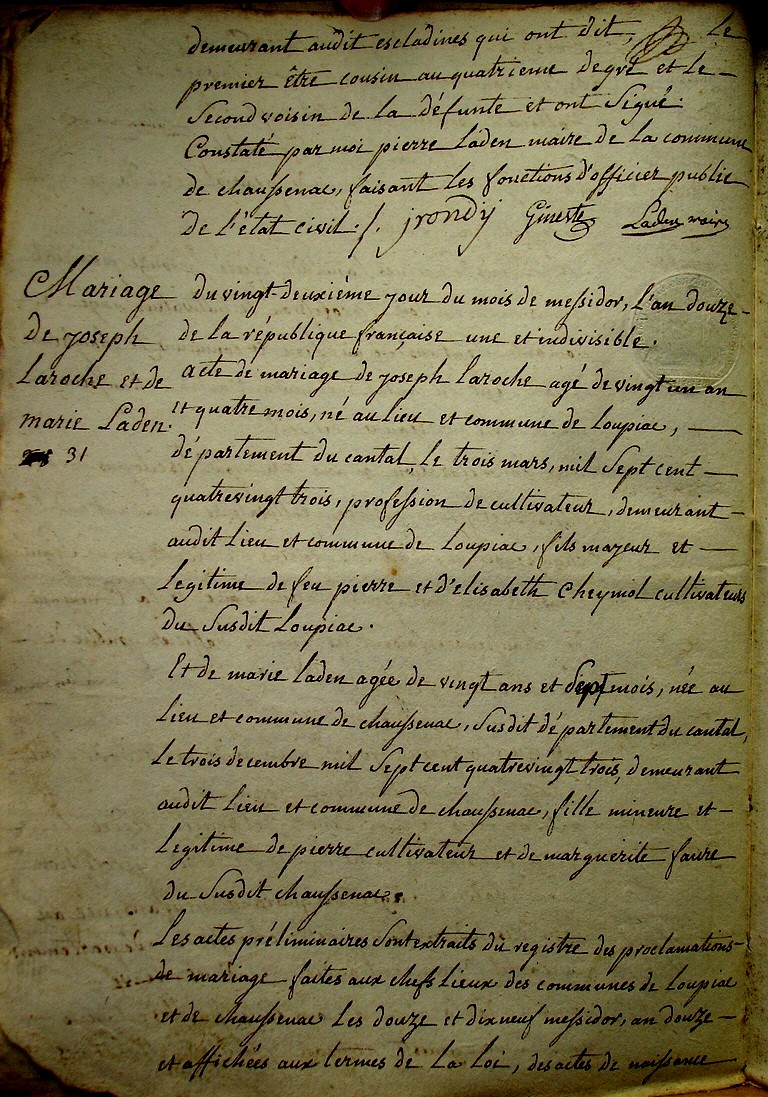 demeurant audit escladines qui ont dit, le
premier être cousin au quatrieme degré et le
Second voisin de la défunte et ont Signé.
Constaté par moi pierre Laden maire de la commune
de chaussenac, faisant les fonctions d'officier public
de l'état civil ./. jrondy Gineste Laden maire
Mariage
de joseph
Laroche et de
marie Laden.
31
Du vingt-deuxiéme jour du mois de messidor, l'an douze
de la république française une et indivisible.
acte de mariage de joseph Laroche agé de vingt un an
et quatre mois, né au lieu et commune de Loupiac,
département du cantal, le trois mars, mil Sept cent
quatrevingt trois, profession de cultivateur, demeurant
audit Lieu et commune de Loupiac, fils majeur et
Legitime de feu pierre et d'elisabeth Cheymol cultivateurs
du Susdit Loupiac.
Et de marie laden agée de vingt ans et Sept mois, née au
Lieu et commune de chaussenac, Susdit département du cantal,
le trois decembre mil Sept cent quatrevingt trois, demeurant
audit Lieu et commune de chaussenac, fille mineure et
Legitime de pierre cultivateur et de marguerite faure
du Susdit chaussenac.
Les actes préliminaires Sont extraits du registre des proclamations
de mariage faites aux chefs Lieux des communes de Loupiac
et de chaussenac Les douze et dixneuf messidor, an douze
et affichées aux termes de La Loi, des actes de naissance